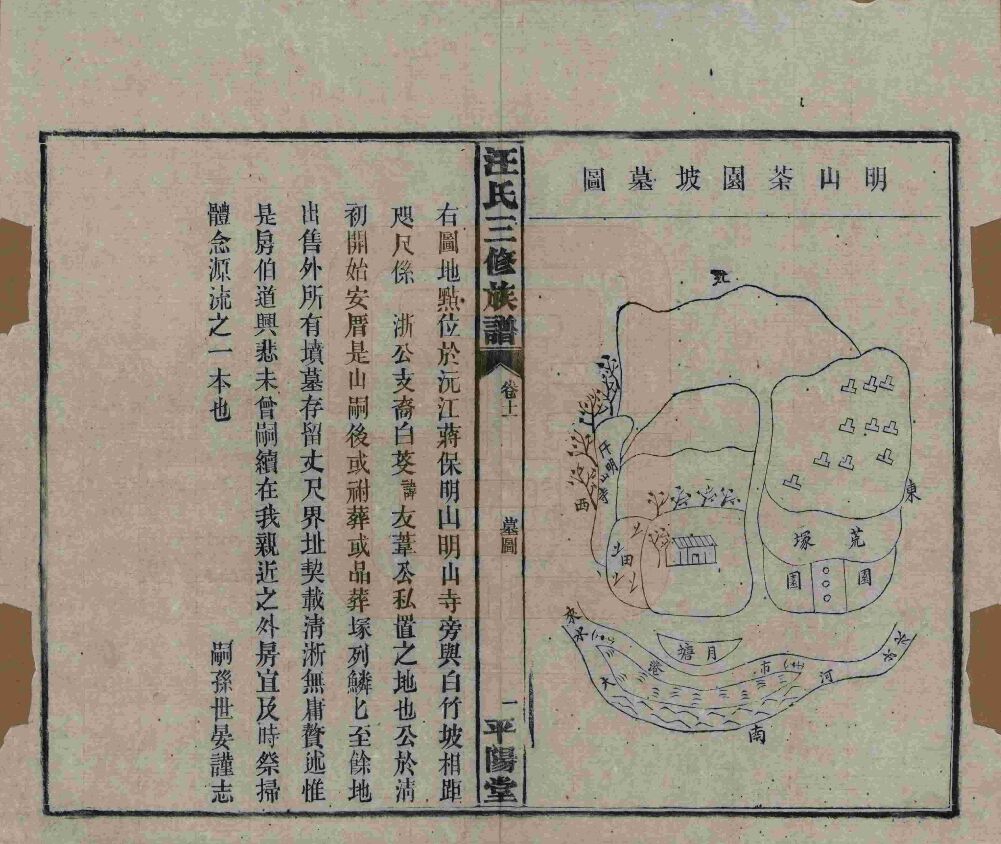 明山茶園坡墓圖
北
東
西
南
氏明山寺
田
荒塚
園
園
月塘
來水
大
港
市
河
去水
汪氏三修族譜
卷上
墓圖
一
平陽堂
右圖地點位於沅江蔣保明山明山寺旁與白竹坡相距
咫尺係 浙公支裔白芰諱友葦公私置之地也公於清
初開始安厝是山嗣後或祔葬或品葬塚列鱗匕至餘地
出售外所有墳墓存留丈尺界址契載清淅無庸贅述惟
是房伯道興悲未曾嗣續在我親近之外房宜及時祭掃
體念源流之一本也
嗣孫世晏謹志